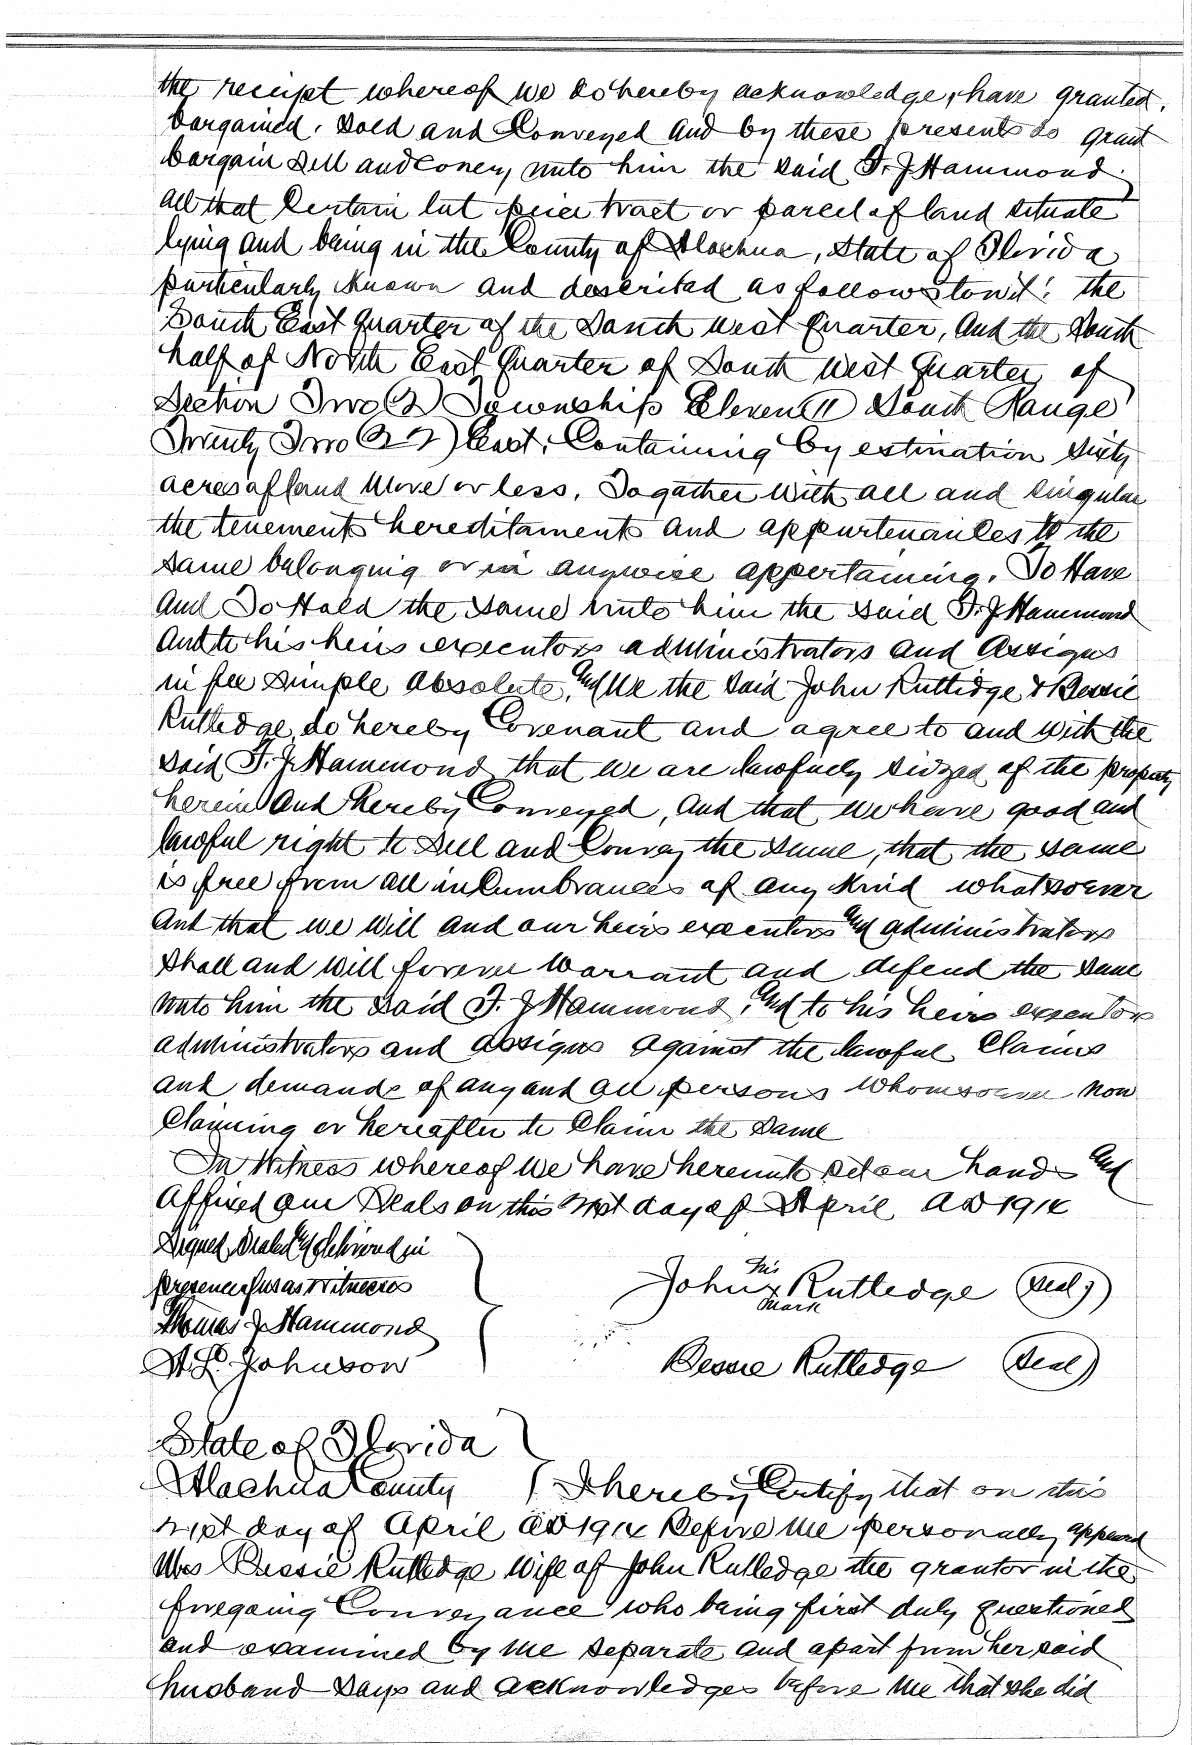 the receipt whereof we do hereby acknowledge, have granted,
bargained, sold and Conveyed and by these presents do grant
bargain sell and conery unto him the said T. J Hammond,
all that Certain lot piece tract or parcel of land situate
lying and being in the County of Alachua, State of Florida
particularly known and described as follows towit: the
South East quarter of the South west quarter, and the South
half of North East quarter of South west quarter of
Section Two (2) Township Eleven (11) South Range
Twenty Two (22) East, Containing by estimation sixty
acres of land more or less. Togather with all and singular
the tenements hereditaments and appurtenances to the
same belonging or in anywise appertaining. To Have
and To Hold the same unto him the said T. J Hammond
and to his heirs executors administrators and assigns
in fee simple absolute, and we the said John Rutledge & Bessie
Rutledge, do hereby Covenant and agree to and with the
said T. J. Hammond that we are lawfully siezed of the property
herein and hereby Conveyed, and that we have good and
lawful right to sell and Convey the same, that the same
is free from all incumbrances of any kind whatsoever
and that we will and our heirs executors and administrators
shall and will forever warrant and defend the same
unto him the said T. J Hammond, and to his heirs executors
administrators and assigns against the lawful Claims
and demands of any and all persons whomsoever now
Claiming or hereafter to Claim the same
In Witness whereof we have hereunto set our hands and
affixed our seals on this 21st day of April AD 1914
Signed, Sealed and delivered in
presence of us as Witnesses
Thomas J Hammond
John his x mark Rutledge (Seal)
Johnson
Bessie Rutledge (Seal)
State of Florida
Alachua County
I hereby Certify that on this
21st day of April AD 1914 Before me personally appeard
Mrs Bessie Rutledge wife of John Rutledge the grantor in the
foregoing Conveyance who being first duly questioned
and examined by me separate and apart from her said
husband says and acknowledges before me that she did